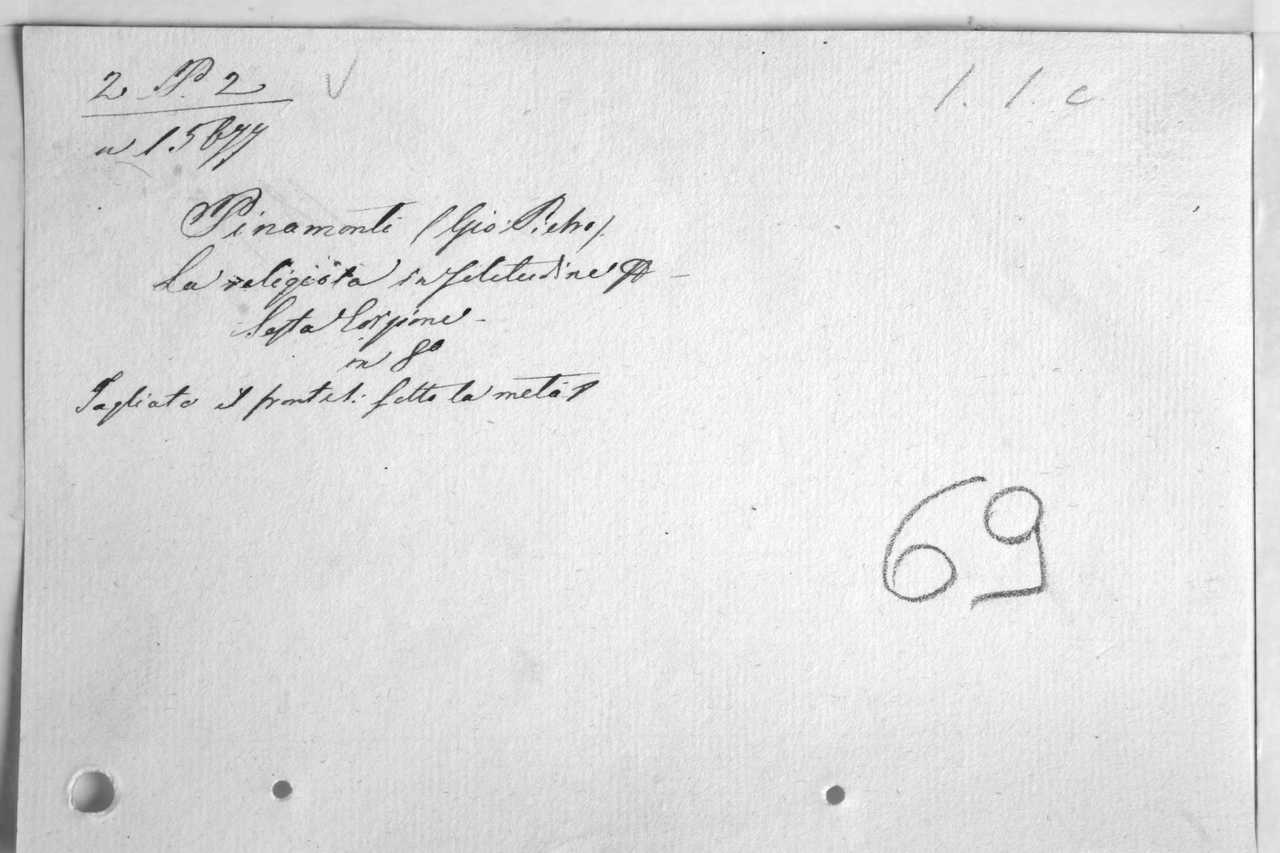 2 P. 2
1. 1. c
n 15677
Pinamonti (Gio: Pietro).
La religiosa in solitudine
Sesta
in 8º
Tagliato il frontesp: sotto la metà
69